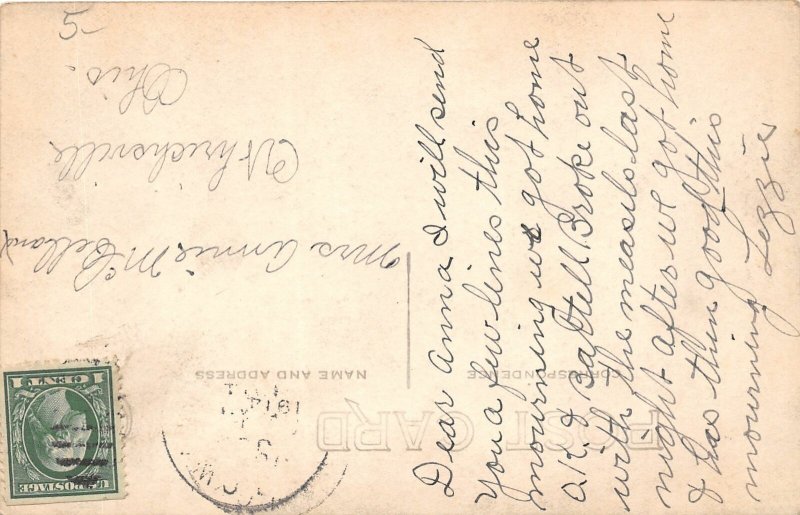 5-
POST CARD
CORRESPONDENCE
NAME AND ADDRESS
Dear Anna I will send
you a few lines this
mourning we got home
O.K. &
Broke out
with the measels last
night after we got home
& has them good this
mourning Lezzie
Mrs Annie McClelland
Uhrichsville
Ohio.
1914
U.S. POSTAGE
1 CENT 1